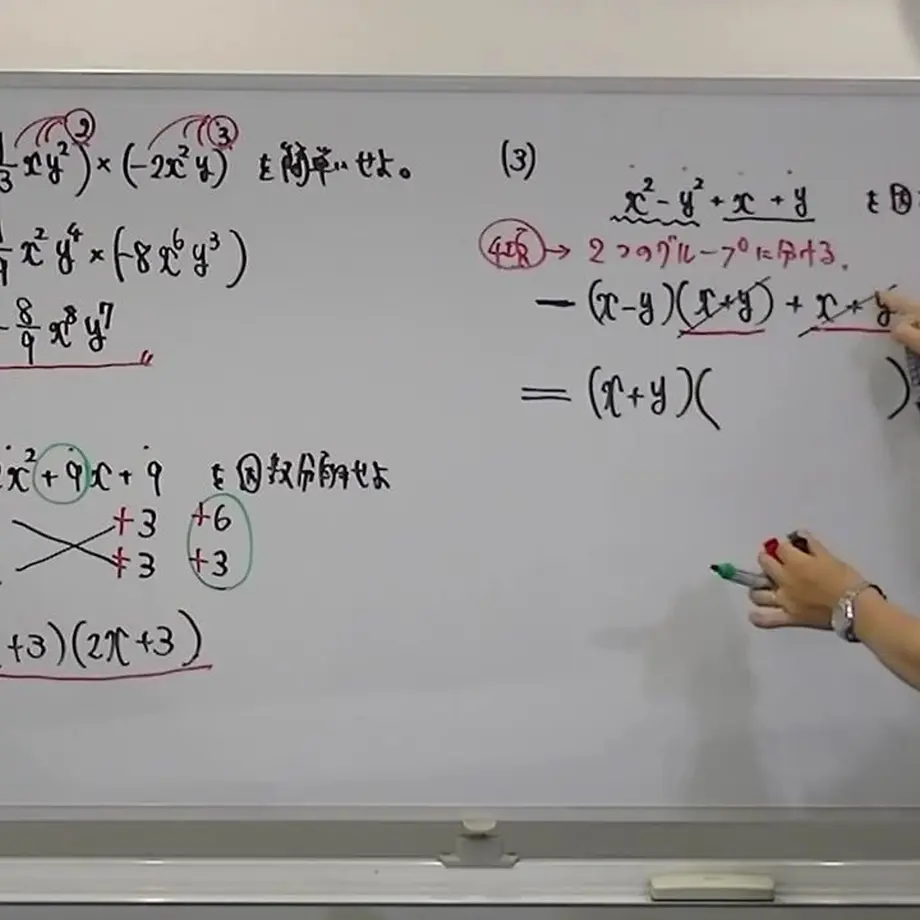 1/3 xy²)² × (-2x²y)³ を簡単にせよ。
1/9 x²y⁴ × (-8x⁶y³)
-8/9 x⁸y⁷
x² + 9x + 9 を因数分解せよ
+3 +6
+3 +3
+3)(2x+3)
(3)
x² - y² + x + y を因
4項 → 2つのグループに分ける.
= (x-y)(x+y) + x+y
= (x+y)( )